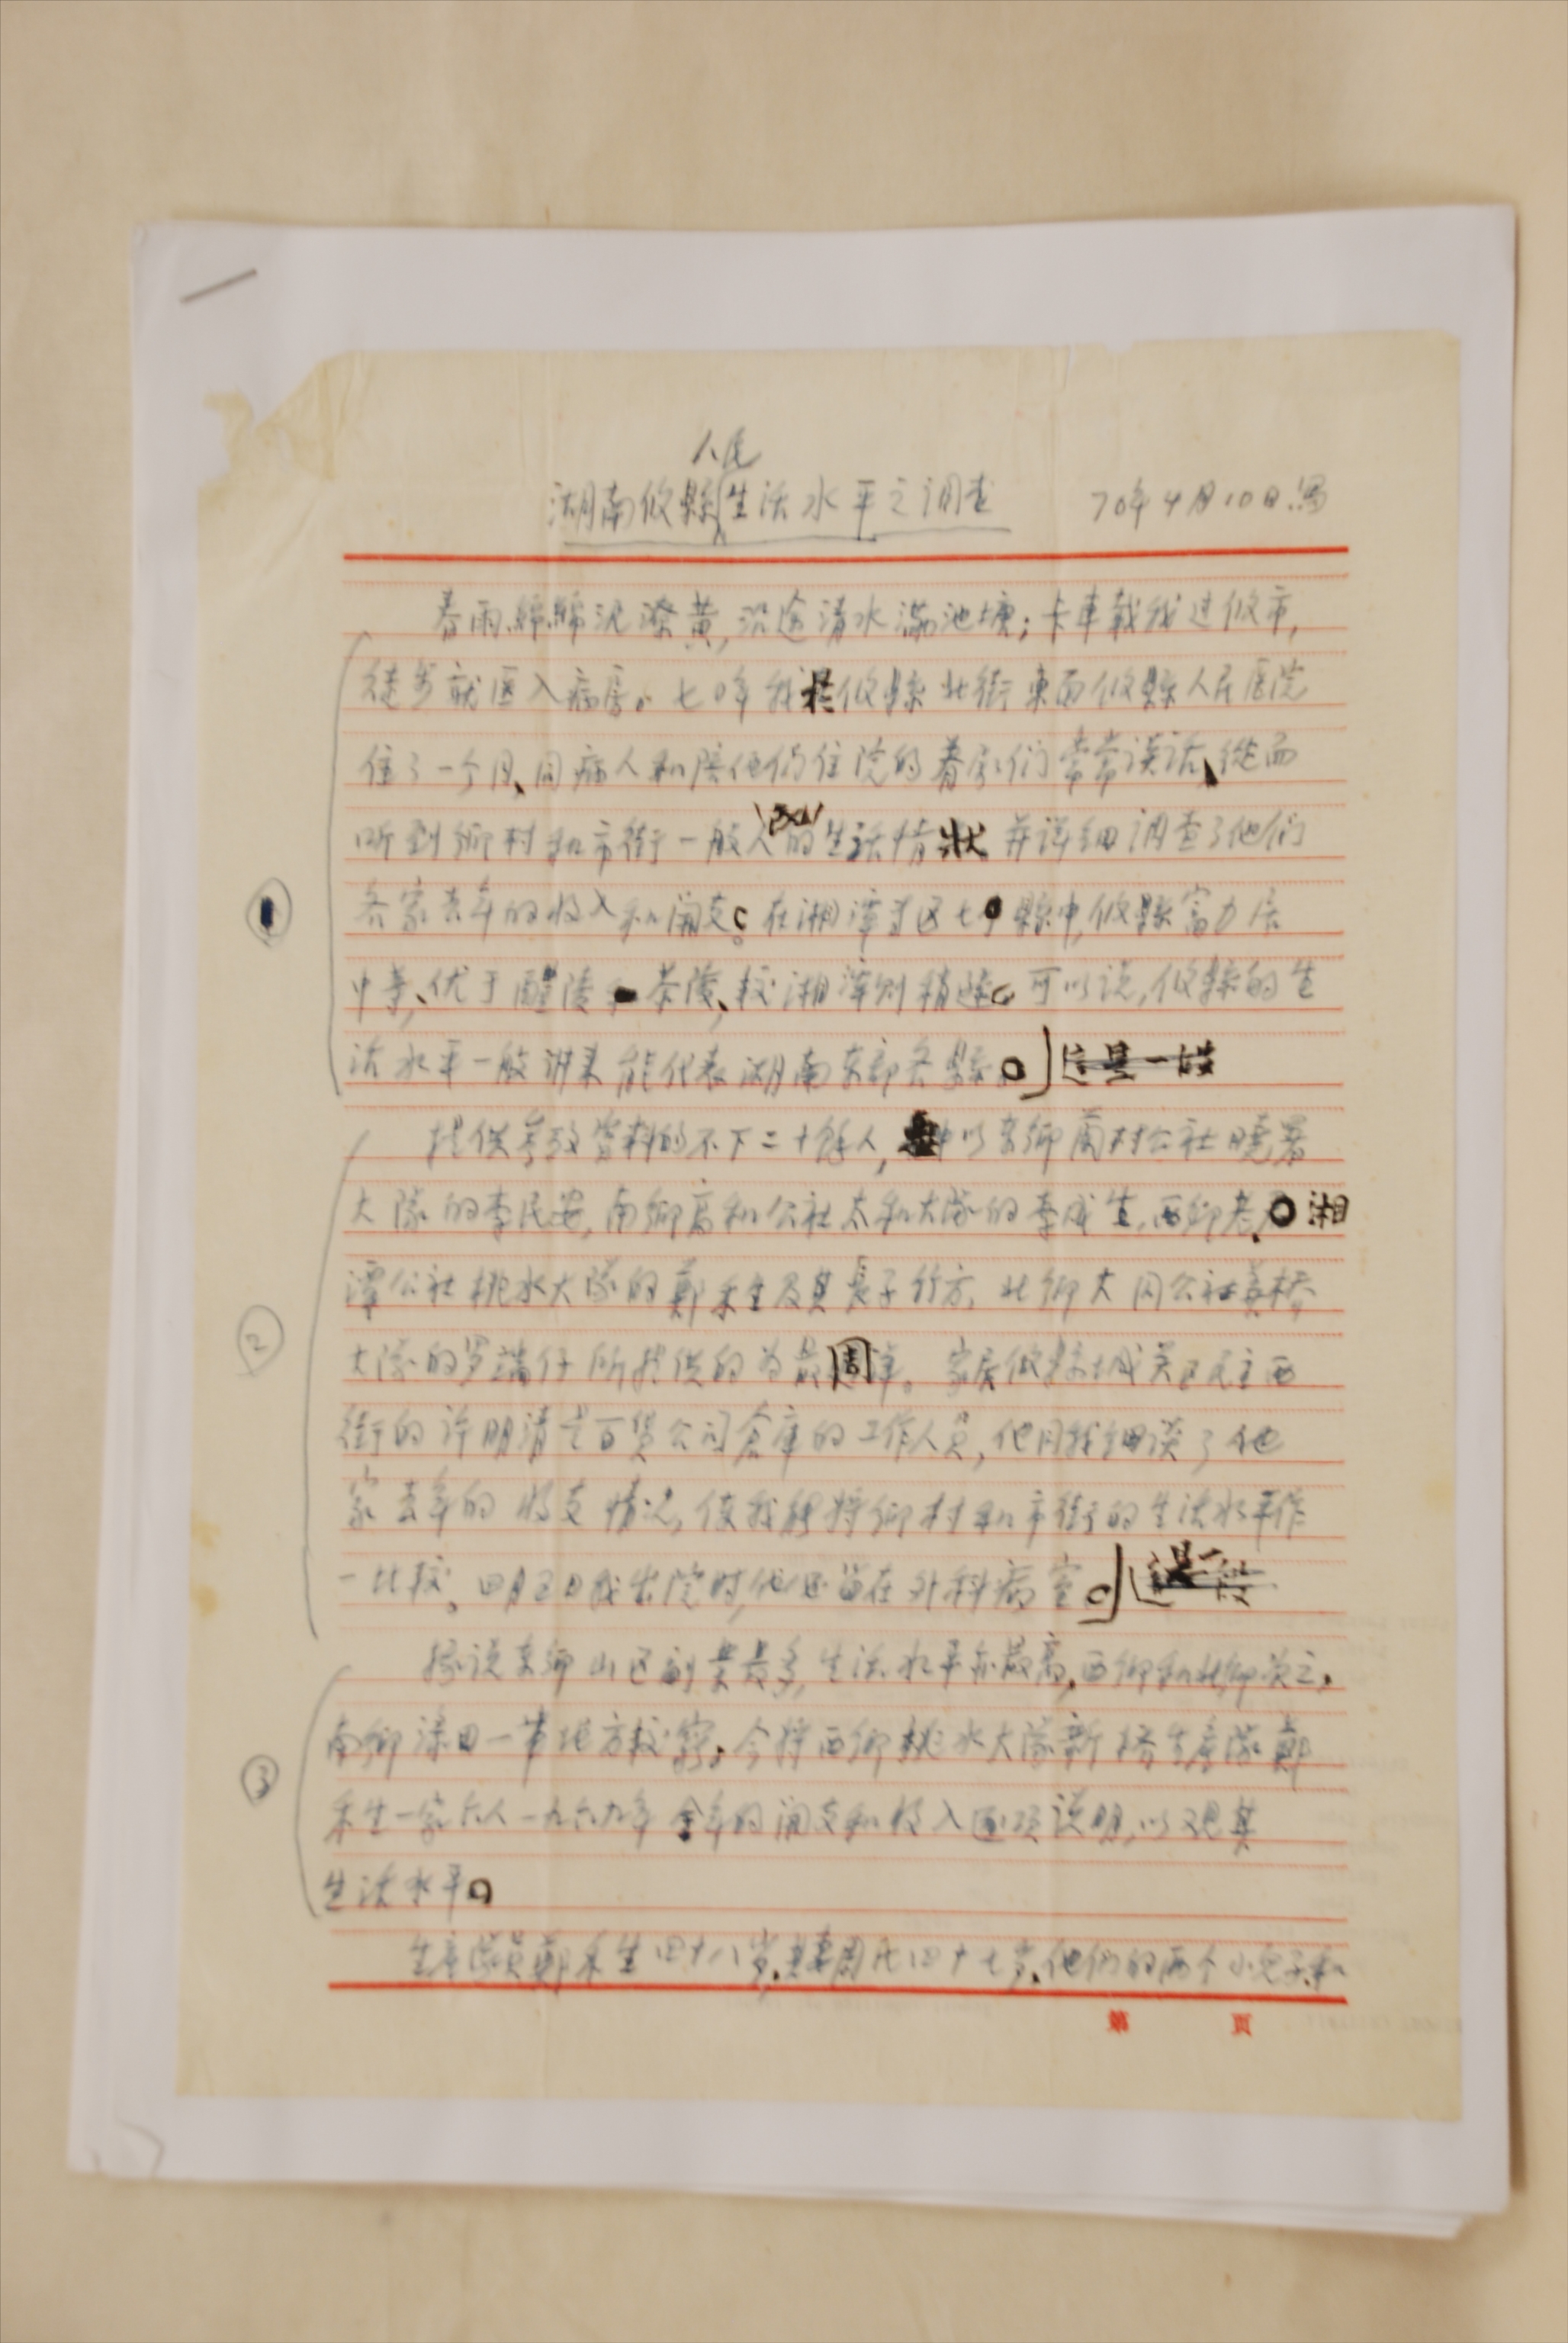 人民
湖南攸縣生活水平之调查 70年4月10日.写
春雨綿綿泥潦黄,沿途清水满池塘;卡車載我过攸市,
徒步就医入病房。七0年我在攸縣北街東面攸縣人民医院
住了一个月、同病人和陪他们住院的眷属们常常谈话、從而
听到鄉村和市街一般人的生活情状。并详细调查了他们
各家去年的收入和開支。在湘潭专区七个縣中,攸縣富力居
中等、优于醴陵和茶陵、較湘潭则稍遜。可以说,攸縣的生
活水平一般讲来能代表湖南东部各縣。 这是一段
提供参致资料的不下二十餘人,其中以东鄉蘭村公社曉署
大隊的李民安,南鄉高和公社太和大隊的李成生,西鄉 湘
潭公社桃水大隊的鄭禾生及其長子竹方,北鄉大同公社 桥
大隊的罗瑞仔所提供的为最周详。家居攸縣城关区民主西
街的许朋清是百货公司倉庫的工作人员,他同我细谈了他
家去年的收支情况,使我能将鄉村和市街的生活水平作
一比較。四月五日我出院时,他还留在外科病室。 这是一段
據说东鄉山区副業最多,生活水平亦最高,西鄉和北鄉次之,
南鄉渌田一带地方較窮。今将西鄉桃水大隊新橋生産隊鄭
禾生一家六人一九六九年全年的開支和收入逐项说明,以观其
生活水平。
生産隊员鄭禾生四十八岁,其妻周氏四十七岁、他们的两个小兒子和
第 頁
1
2
3